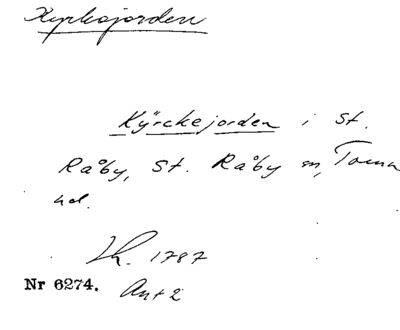 Kyrkojorden
Kÿrckejorden i St.
Råby, St. Råby sn, Torna
hd.
Lk. 1787
Nr 6274. Ant 2